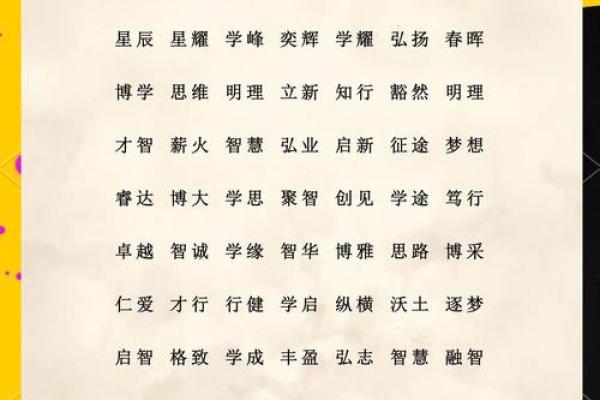 星辰 星耀 学峰 奕辉 学耀 弘扬 春晖
博学 思维 明理 立新 知行 豁然 明理
才智 薪火 智慧 弘业 启新 征途 梦想
睿达 博大 学思 聚智 创见 学途 笃行
卓越 智诚 学缘 智华 博雅 思路 博采
仁爱 才行 行健 学启 纵横 沃土 逐梦
启智 格致 学成 丰盈 弘志 智慧 融智